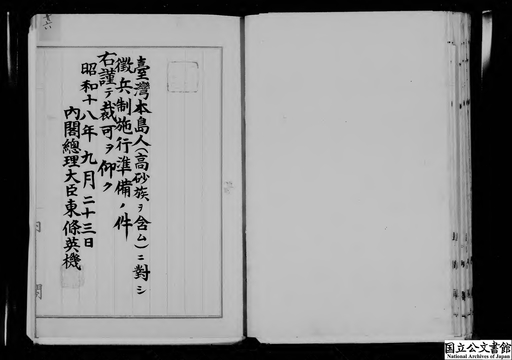 臺灣本島人(高砂族ヲ含ム)ニ對シ
徵兵制施行準備ノ件
右謹テ裁可ヲ仰ク
昭和十八年九月二十三日
內閣總理大臣東條英機
内
閣
国立公文書館
National Archives of Japan